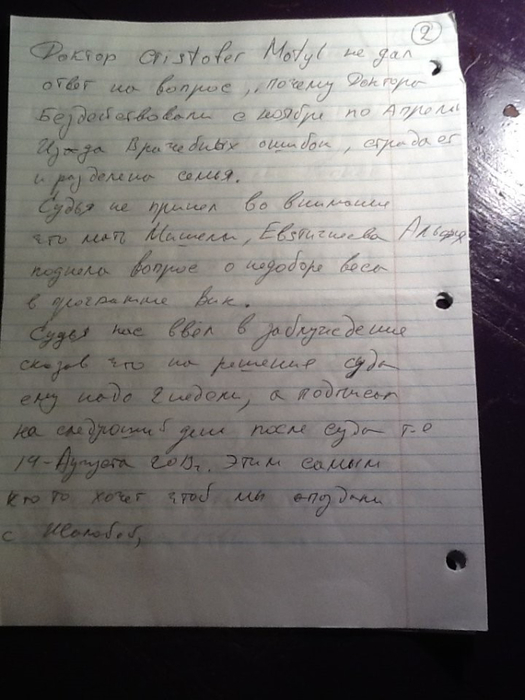 2
Доктор Cristofer Motyl не дал
ответ на вопрос, „почему Доктора
Бездействовали с ноября по Апрель
Из-за Врачебных ошибок, страдает
и разделена семья.
Судья не принел во внимание
что мать Мишель, Евстигнеева
поднела вопрос о недоборе веса
в программе Вик.
Судья нас ввел в заблуждение
сказав что на решение суда
ему надо 2 недели, а подписал
на следующий день после суда т-е
14-Августа 2013г. Этим самым
кто то хочет чтоб мы опоздали
с Жалобой,